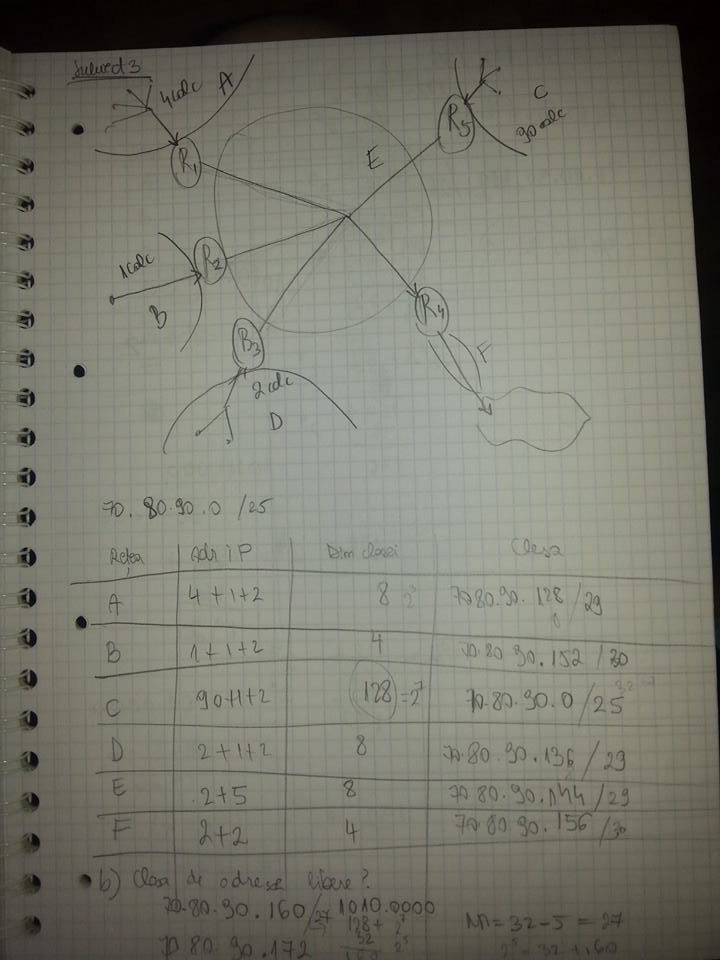 4 calc A
C
90 calc
R5
E
R1
1 calc
R2
B
R4
R3
F
2 calc
D
70.80.90.0 /25
Rețea Adr IP Dim clasei Clasa
A 4+1+2 8 2³ 70.80.90.128/29
8
B 1+1+2 4 70.80.90.152/30
C 90+1+2 128 = 2⁷ 70.80.90.0/25
D 2+1+2 8 70.80.90.136/29
E 2+5 8 70.80.90.144/29
F 2+2 4 70.80.90.156/30
b) Clasa de adrese libere?
70.80.90.160/27 1010.0000
128+ 2⁷ M=32-5=27
70.80.90.172 32 2⁵ 2⁵=32+160
160